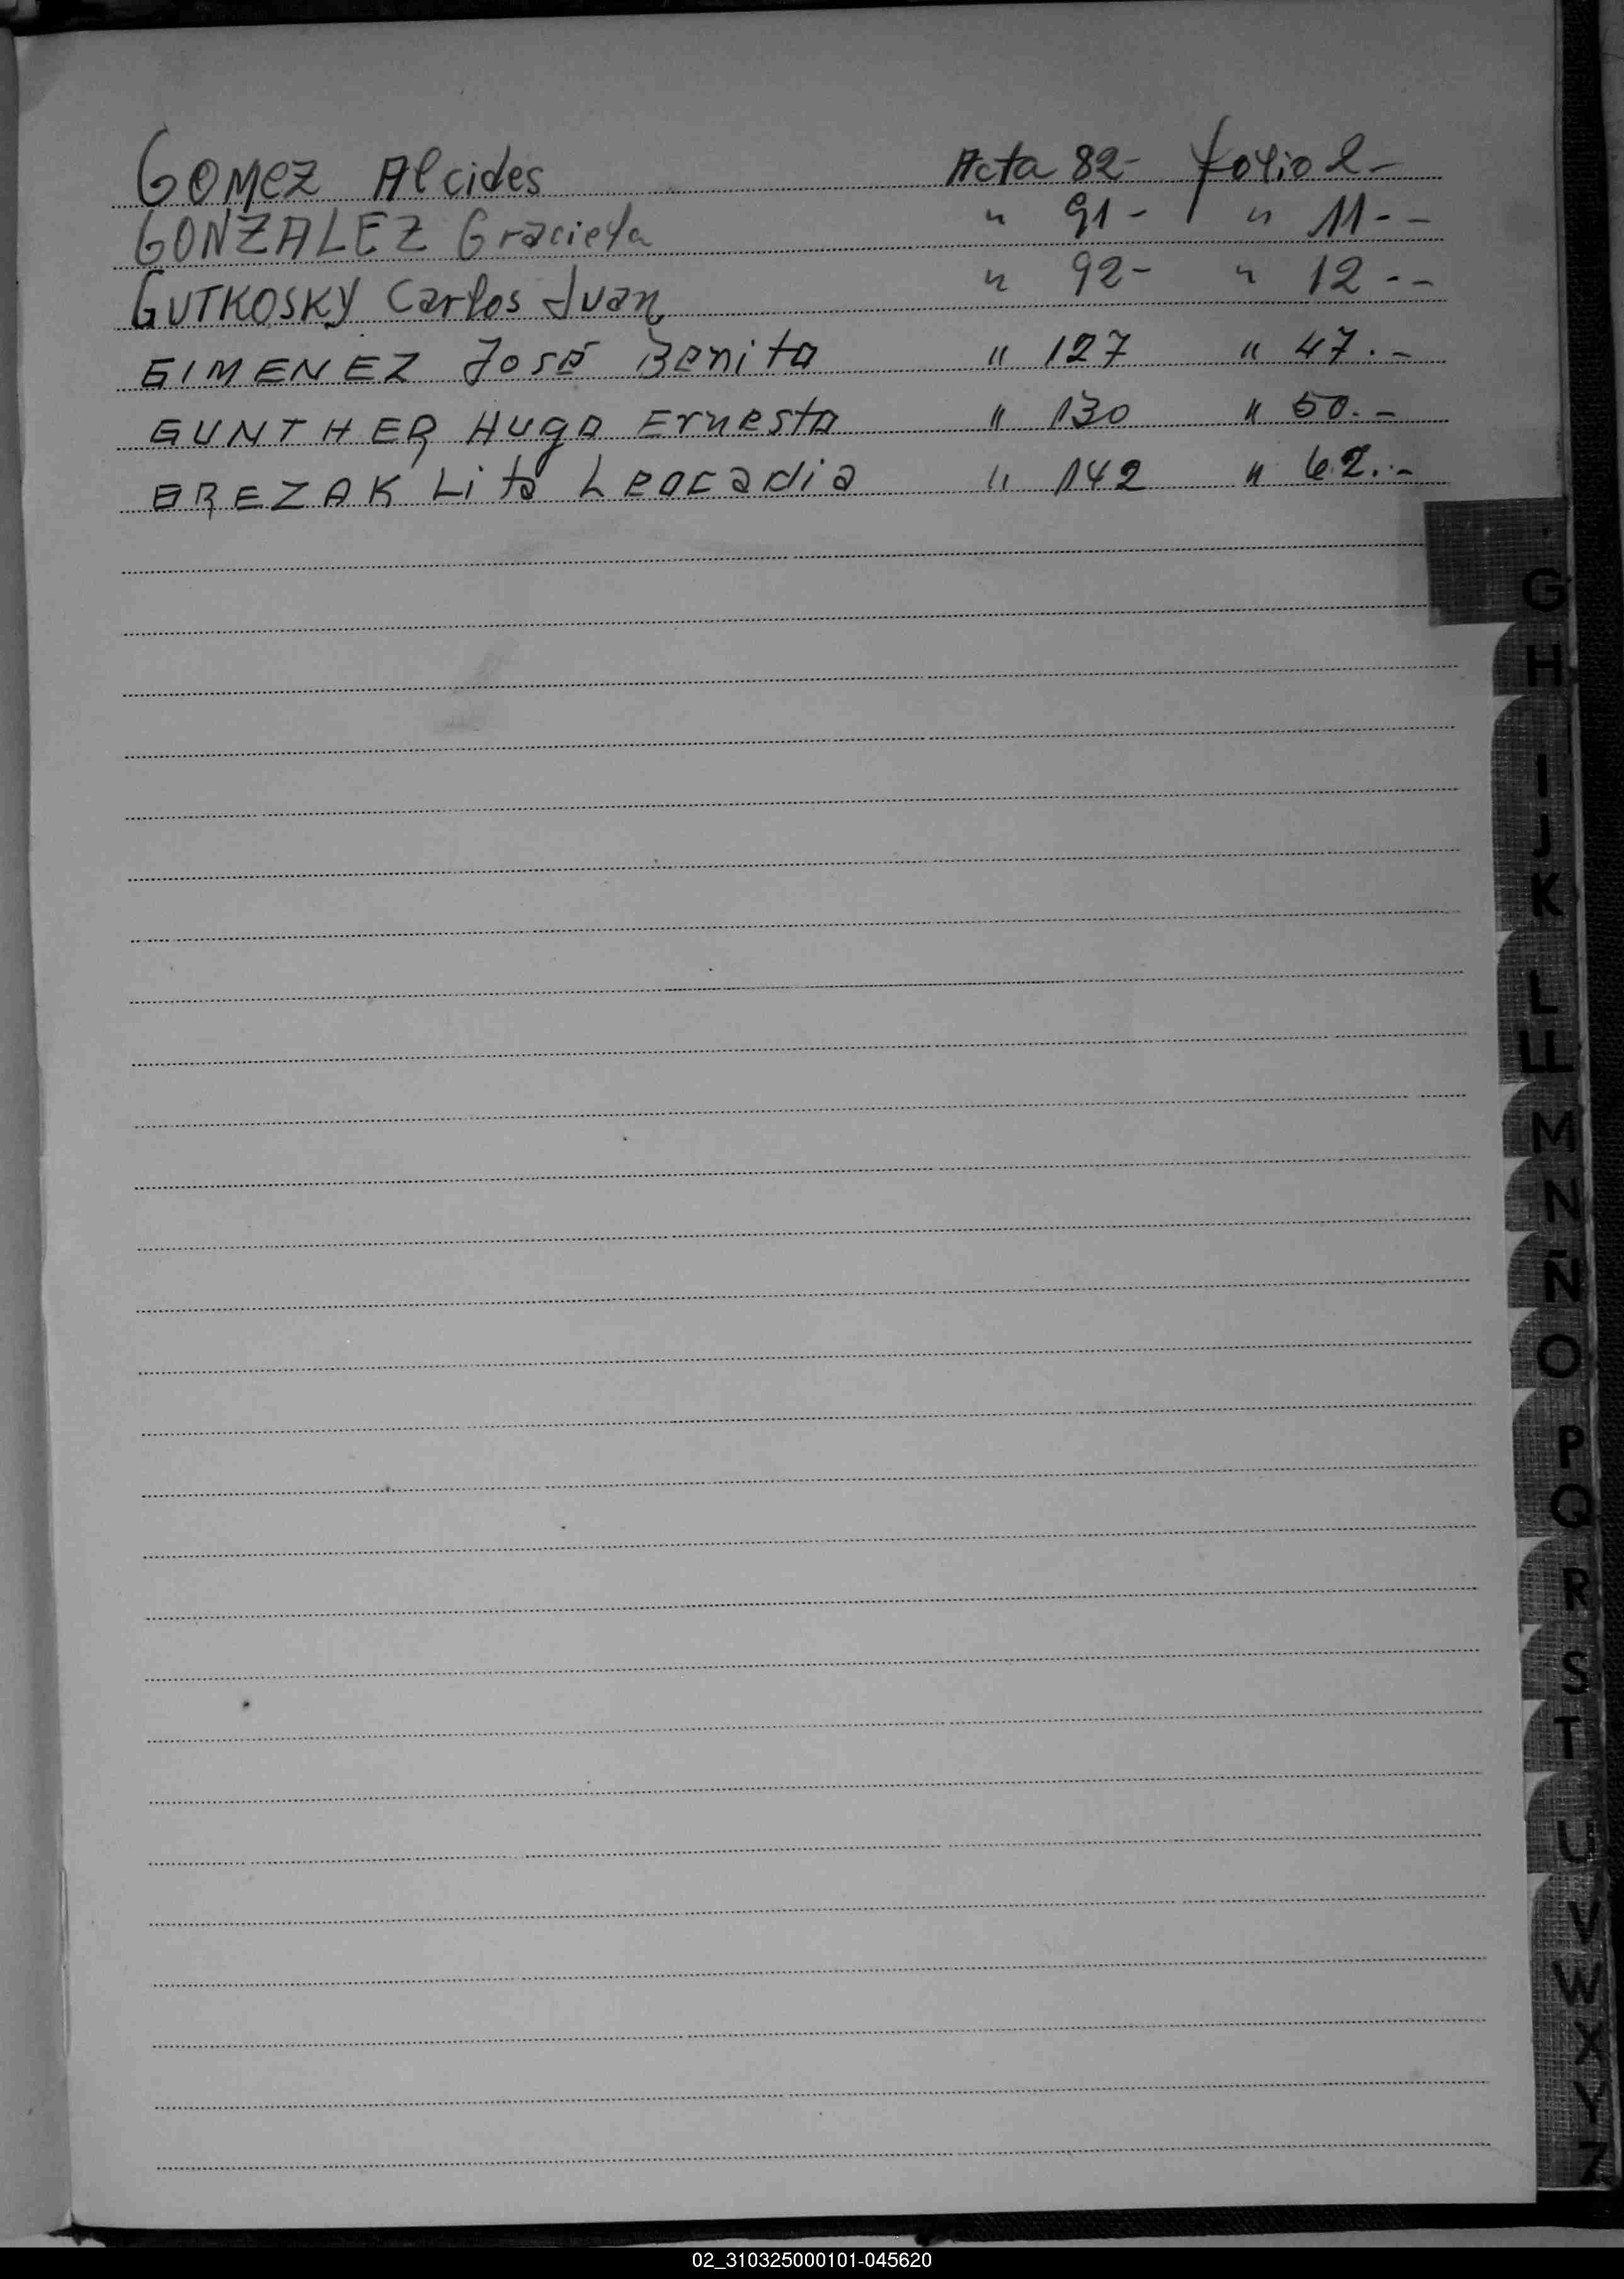 GOMEZ Alcides Acta 82- folio 2-
GONZALEZ Graciela " 91- " 11--
GUTKOSKY Carlos Juan " 92- " 12--
GIMENEZ José Benito " 127 " 47.-
GUNTHER Hugo Ernesto " 130 " 50.-
GREZAK Lita Leocadia " 142 " 62.-
G
H
I
J
K
L
LL
M
N
Ñ
O
P
Q
R
S
T
U
V
W
X
Y
Z
02_310325000101-045620